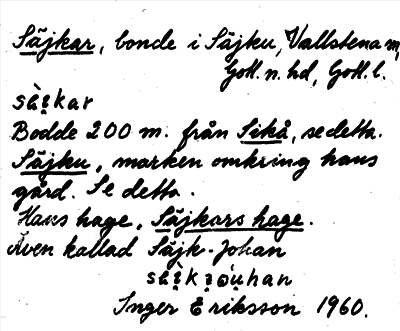 Säjkar, bonde i Säjku, Vallstena sn,
Gotl. n. hd, Gotl. l.
sä̀i̯kar
Bodde 200 m. från Sikå, se detta.
Säjku, marken omkring hans
gård. Se detta.
Hans hage, Säjkars hage.
Även kallad Säjk-Johan
Inger Eriksson 1960.